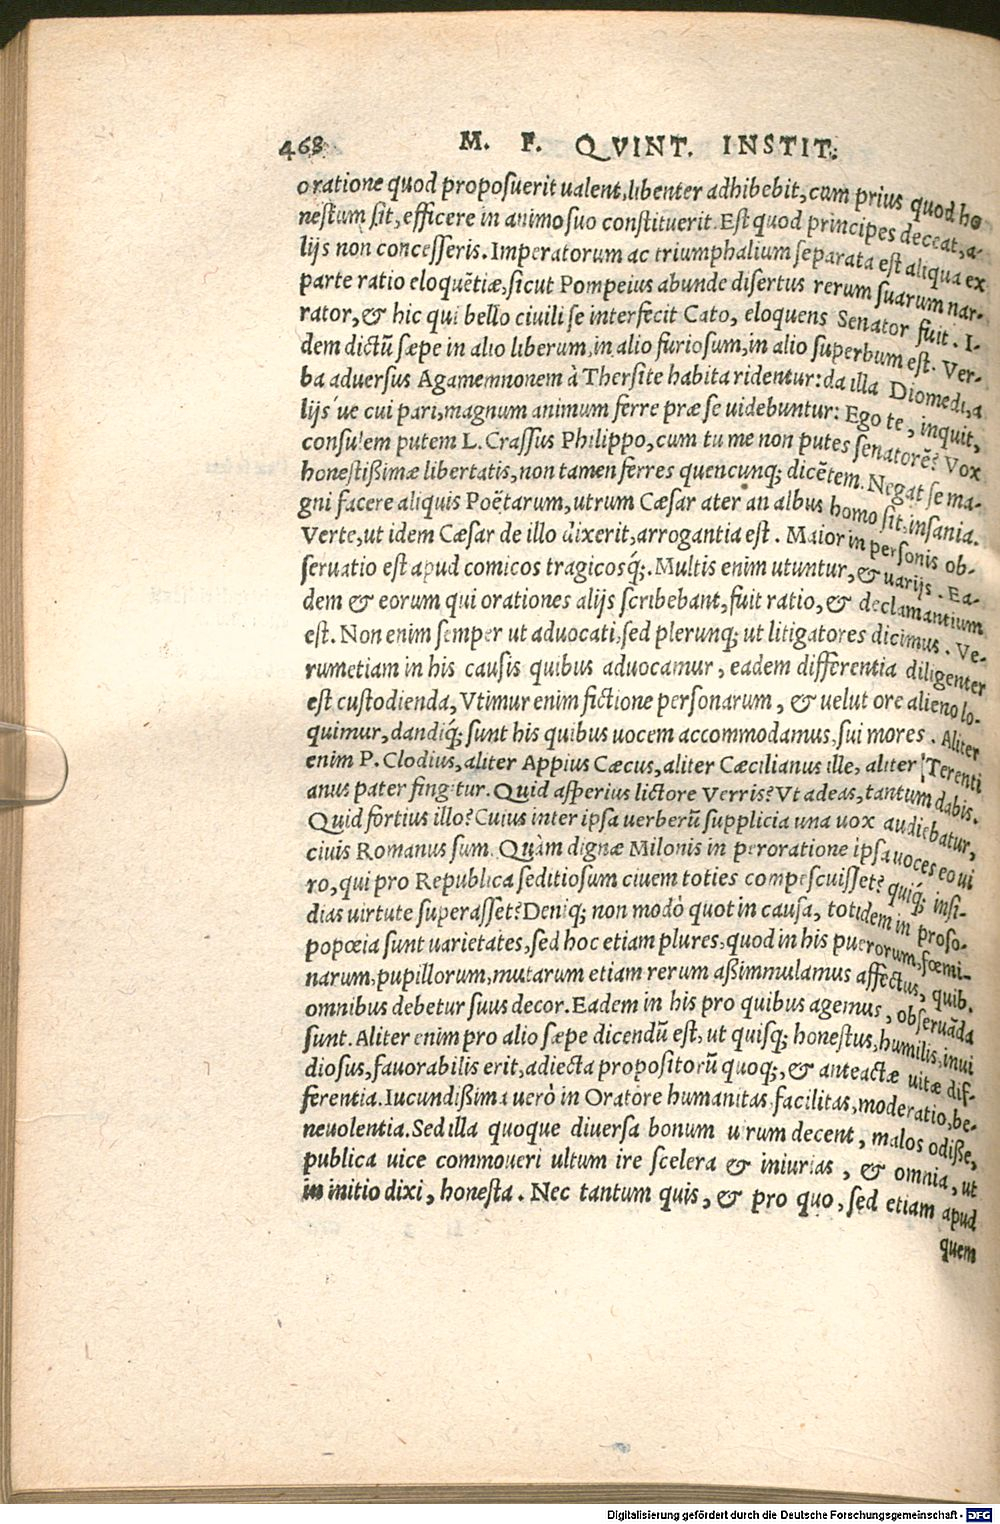 468 M. F. QVINT. INSTIT.
oratione quod proposuerit ualent, libenter adhibebit, cum prius quod ho
nestum sit, efficere in animo suo constituerit. Est quod principes deceat, a-
lijs non concesseris. Imperatorum ac triumphalium separata est aliqua ex
parte ratio eloquẽtiæ, sicut Pompeius abunde disertus rerum suarum nar-
rator, & hic qui bello ciuili se interfecit Cato, eloquens Senator fuit. I-
dem dictũ sæpe in alio liberum, in alio furiosum, in alio superbum est. Ver-
ba aduersus Agamemnonem à Thersite habita ridentur: da illa Diomedi, a
lijs ue cui pari, magnum animum ferre præ se uidebuntur: Ego te, inquit,
consulem putem L. Crassus Philippo, cum tu me non putes senatorẽ? Vox
honestißimæ libertatis, non tamen ferres quencunq; dicẽtem. Negat se ma-
gni facere aliquis Poëtarum, utrum Cæsar ater an albus homo sit, insania.
Verte, ut idem Cæsar de illo dixerit, arrogantia est. Maior in personis ob-
seruatio est apud comicos tragicosq́;. Multis enim utuntur, & uarijs. Ea-
dem & eorum qui orationes alijs scribebant, fuit ratio, & declamantium
est. Non enim semper ut aduocati, sed plerunq; ut litigatores dicimus. Ve-
rumetiam in his causis quibus aduocamur, eadem differentia diligenter
est custodienda, Vtimur enim fictione personarum, & uelut ore alieno lo-
quimur, dandiq́; sunt his quibus uocem accommodamus, sui mores. Aliter
enim P. Clodius, aliter Appius Cæcus, aliter Cæcilianus ille, aliter Terenti
anus pater fingitur. Quid asperius lictore Verris? Vt adeas, tantum dabis.
Quid fortius illo? Cuius inter ipsa uerberũ supplicia una uox audiebatur,
ciuis Romanus sum. Quàm dignæ Milonis in peroratione ipsa uoces eo ui
ro, qui pro Republica seditiosum ciuem toties compescuisset? quiq́; insi-
dias uirtute superasset? Deniq; non modò quot in causa, totidem in proso-
popœia sunt uarietates, sed hoc etiam plures, quod in his puerorum, fœmi-
narum, pupillorum, mutarum etiam rerum aßimulamus affectus, quib.
omnibus debetur suus decor. Eadem in his pro quibus agemus, obseruãda
sunt. Aliter enim pro alio sæpe dicendũ est, ut quisq; honestus, humilis, inui
diosus, fauorabilis erit, adiecta propositorũ quoq;, & anteactæ uitæ dif-
ferentia. Iucundißima uerò in Oratore humanitas facilitas, moderatio, be-
neuolentia. Sed illa quoque diuersa bonum uirum decent, malos odiße,
publica uice commoueri ultum ire scelera & iniurias, & omnia, ut
in initio dixi, honesta. Nec tantum quis, & pro quo, sed etiam apud
quem
Digitalisierung gefördert durch die Deutsche Forschungsgemeinschaft - DFG